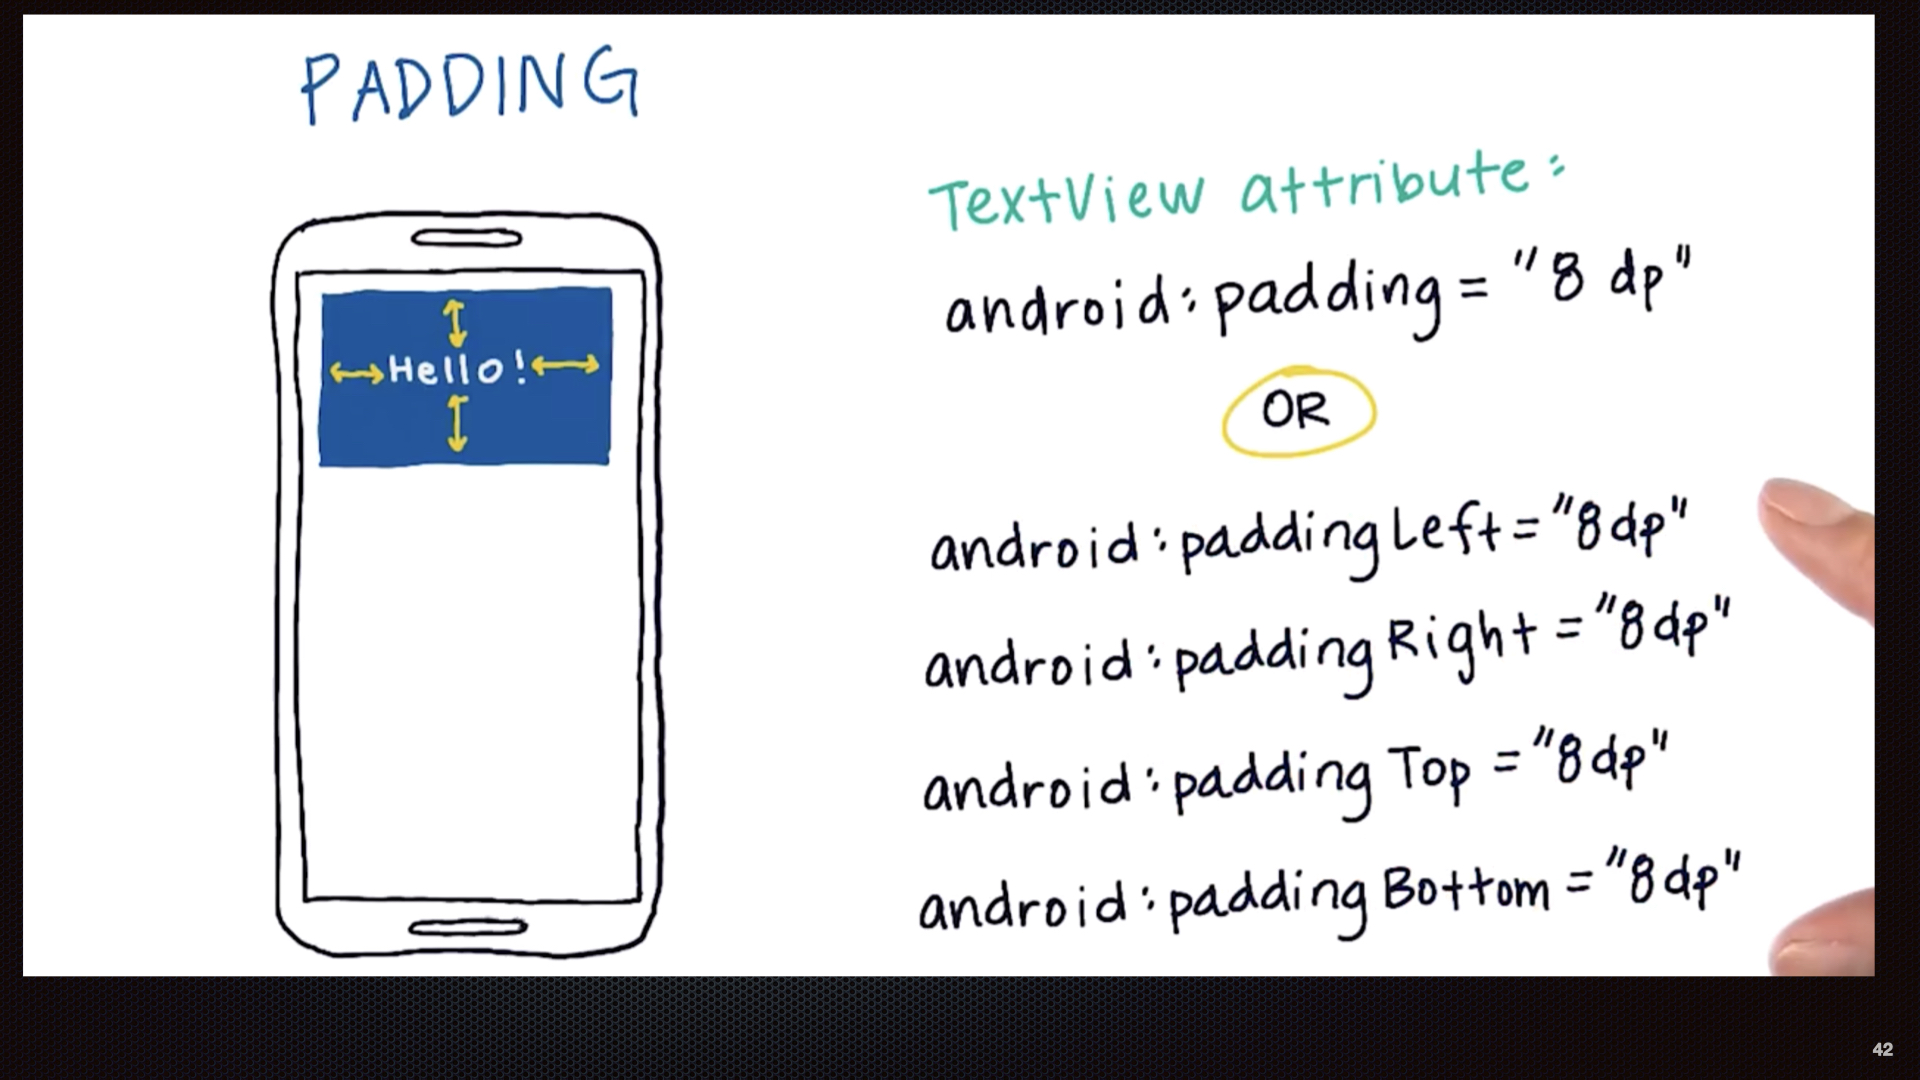 PADDING
Hello!
TextView attribute:
android:padding = "8 dp"
OR
android:paddingLeft = "8dp"
android:paddingRight = "8dp"
android:paddingTop = "8dp"
android:paddingBottom = "8dp"
42